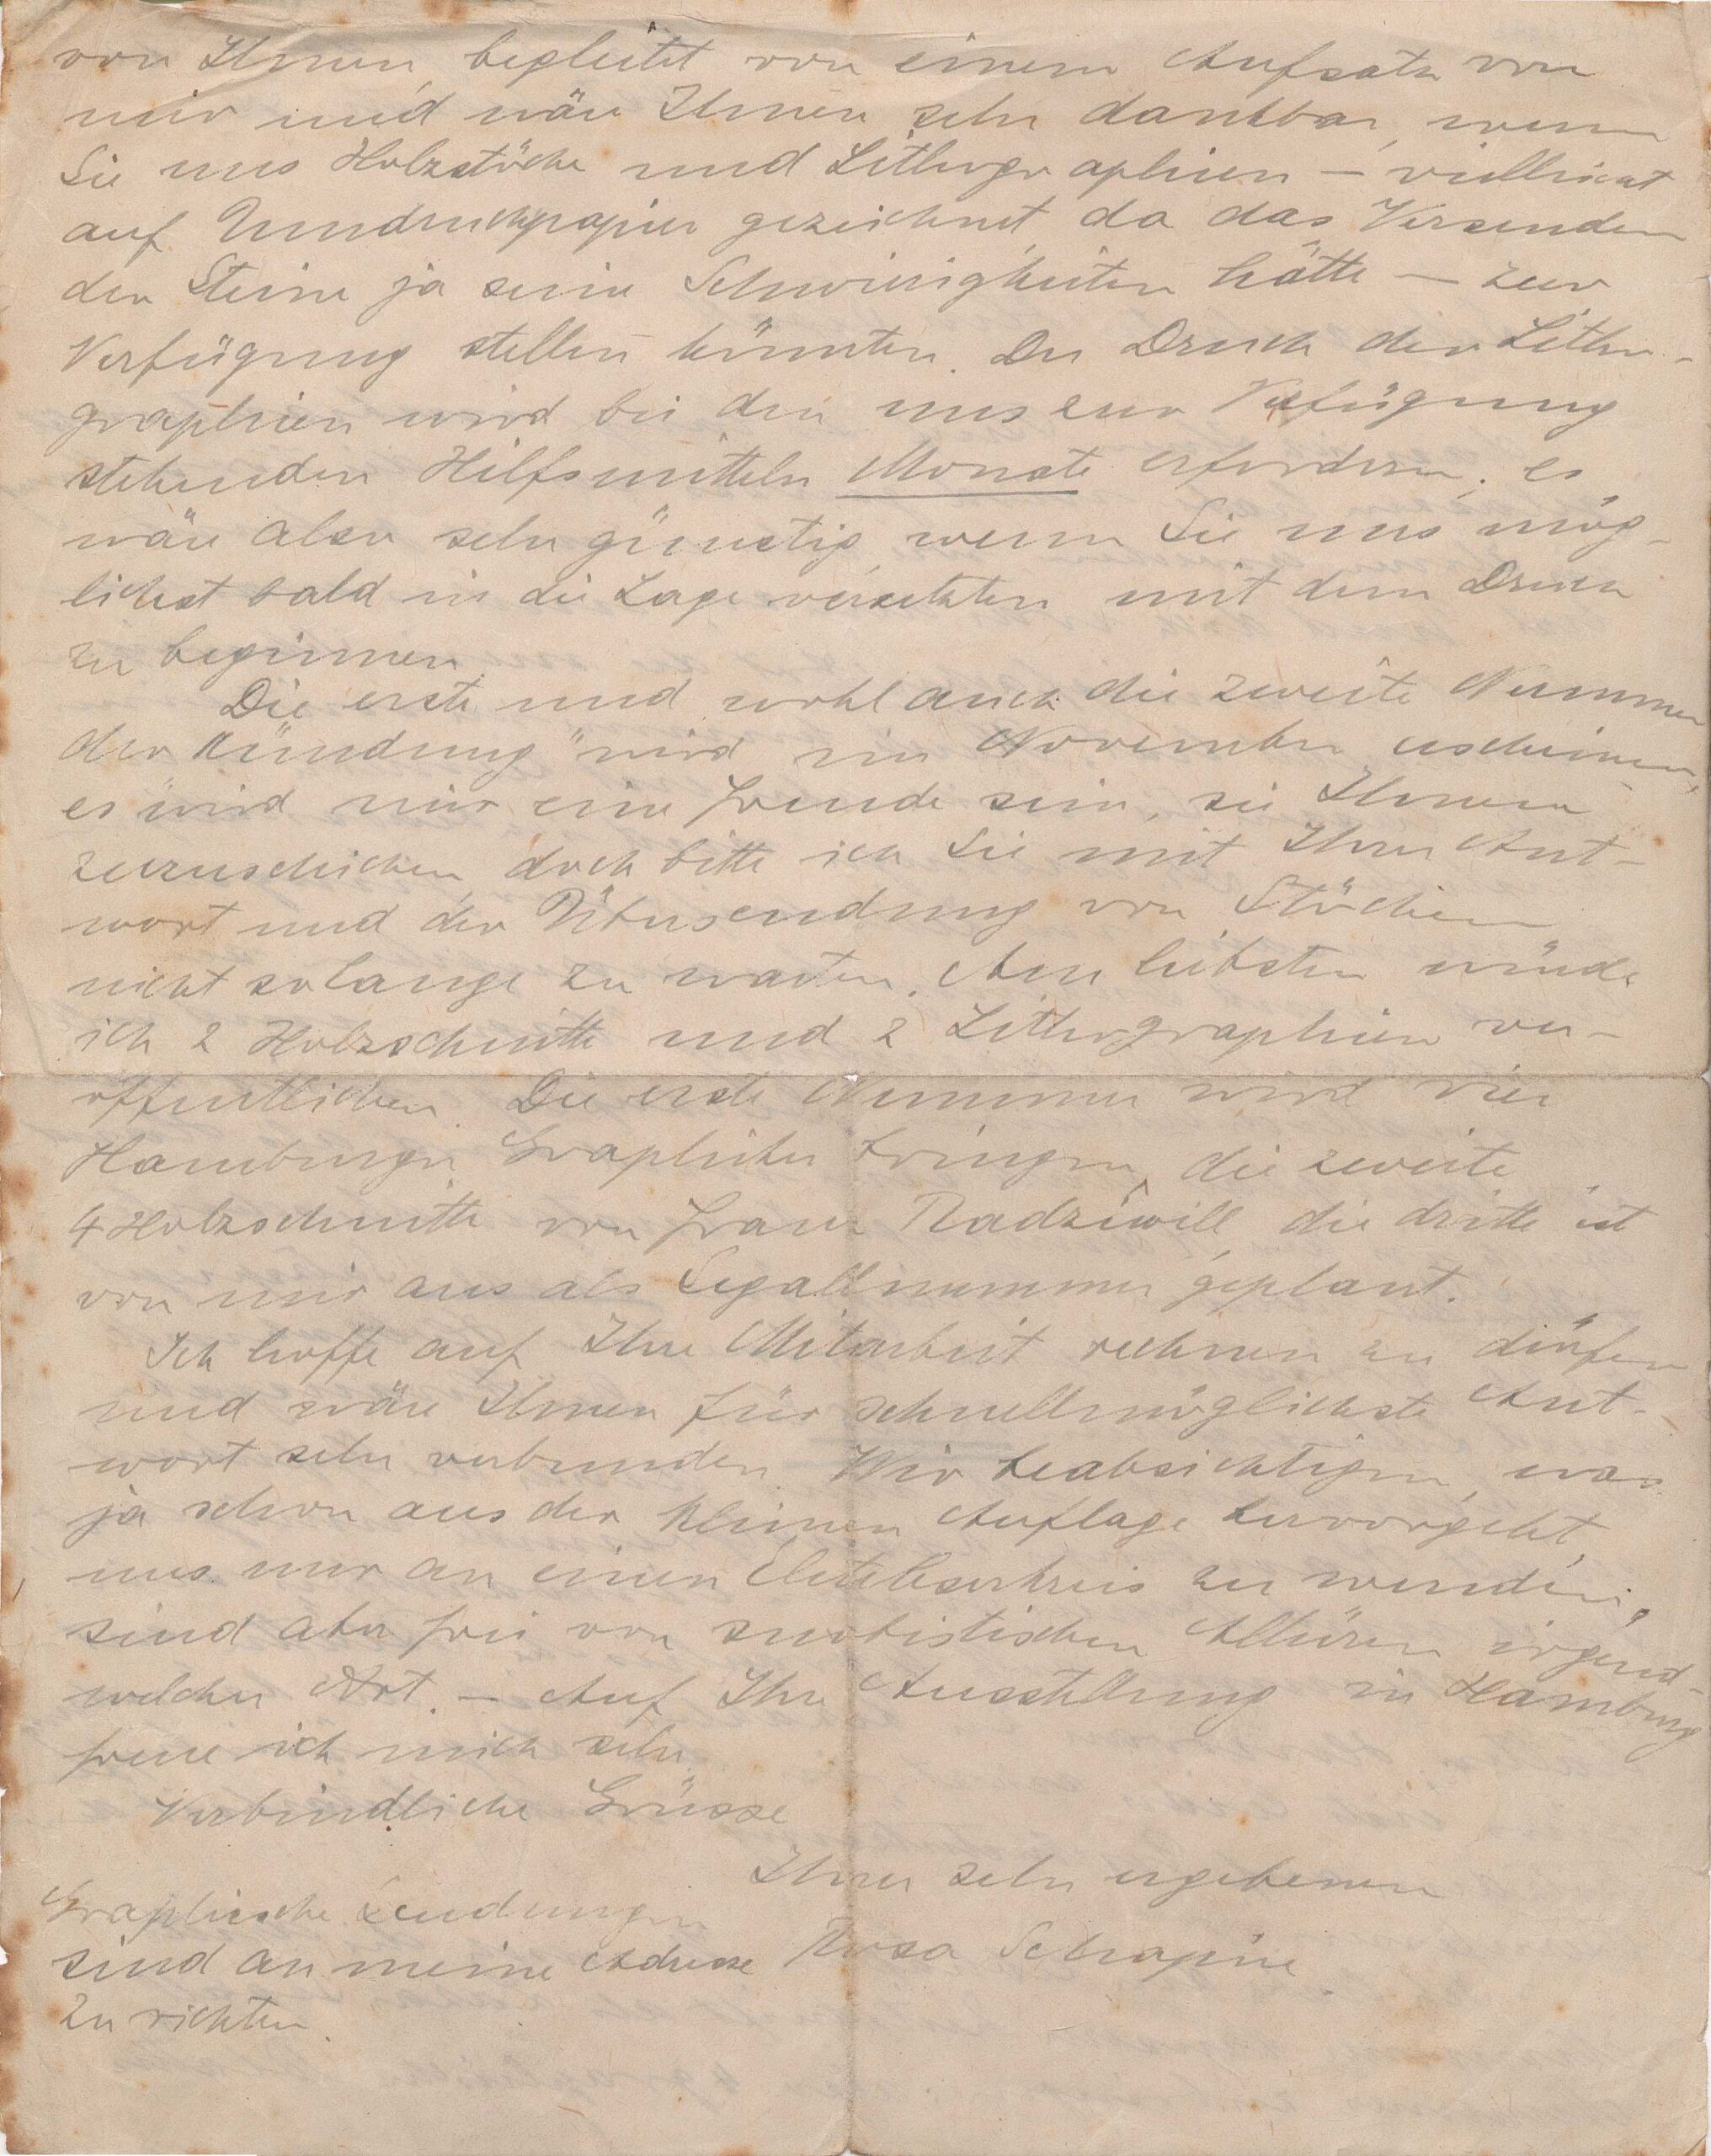 von Ihnen, begleitet von einem Aufsatz von
mir und wäre Ihnen sehr dankbar, wenn
Sie uns Holzstöcke und Lithographien – vielleicht
auf Umdruckpapier gezeichnet, da das Versenden
der Steine ja seine Schwierigkeiten hätte – zur
Verfügung stellen könnten. Der Druck der Litho-
graphien wird bei den uns zur Verfügung
stehenden Hilfsmitteln Monate erfordern, es
wäre also sehr günstig, wenn Sie uns mög-
lichst bald in die Lage versetzten mit dem Druck
zu beginnen.
Die erste und wohl auch die zweite Nummer
der "Kündung" wird im November erscheinen,
es wird mir eine Freude sein, sie Ihnen
zuzuschicken, doch bitte ich Sie mit Ihrer Ant-
wort und der Übersendung von Stöcken
nicht solange zu warten. Am liebsten würde
ich 2 Holzschnitte und 2 Lithographien ver-
öffentlichen. Die erste Nummer wird vier
Hamburger Graphiker bringen, die zweite
4 Holzschnitte von Franz Radziwill, die dritte ist
von mir aus als Segallnummer geplant.
Ich hoffe auf Ihre Mitarbeit rechnen zu dürfen
und wäre Ihnen für schnellmöglichste Ant-
wort sehr verbunden. Wir beabsichtigen, was
ja schon aus der kleinen Auflage hervorgeht,
uns nur an einen Eliteleserkreis zu wenden,
sind aber frei von snobistischen Allüren irgend-
welcher Art. – Auf Ihre Ausstellung in Hamburg
freue ich mich sehr.
Verbindliche Grüsse
Ihrer sehr ergebenen
Rosa Schapire
Graphische Sendungen
sind an meine Adresse
zu richten.